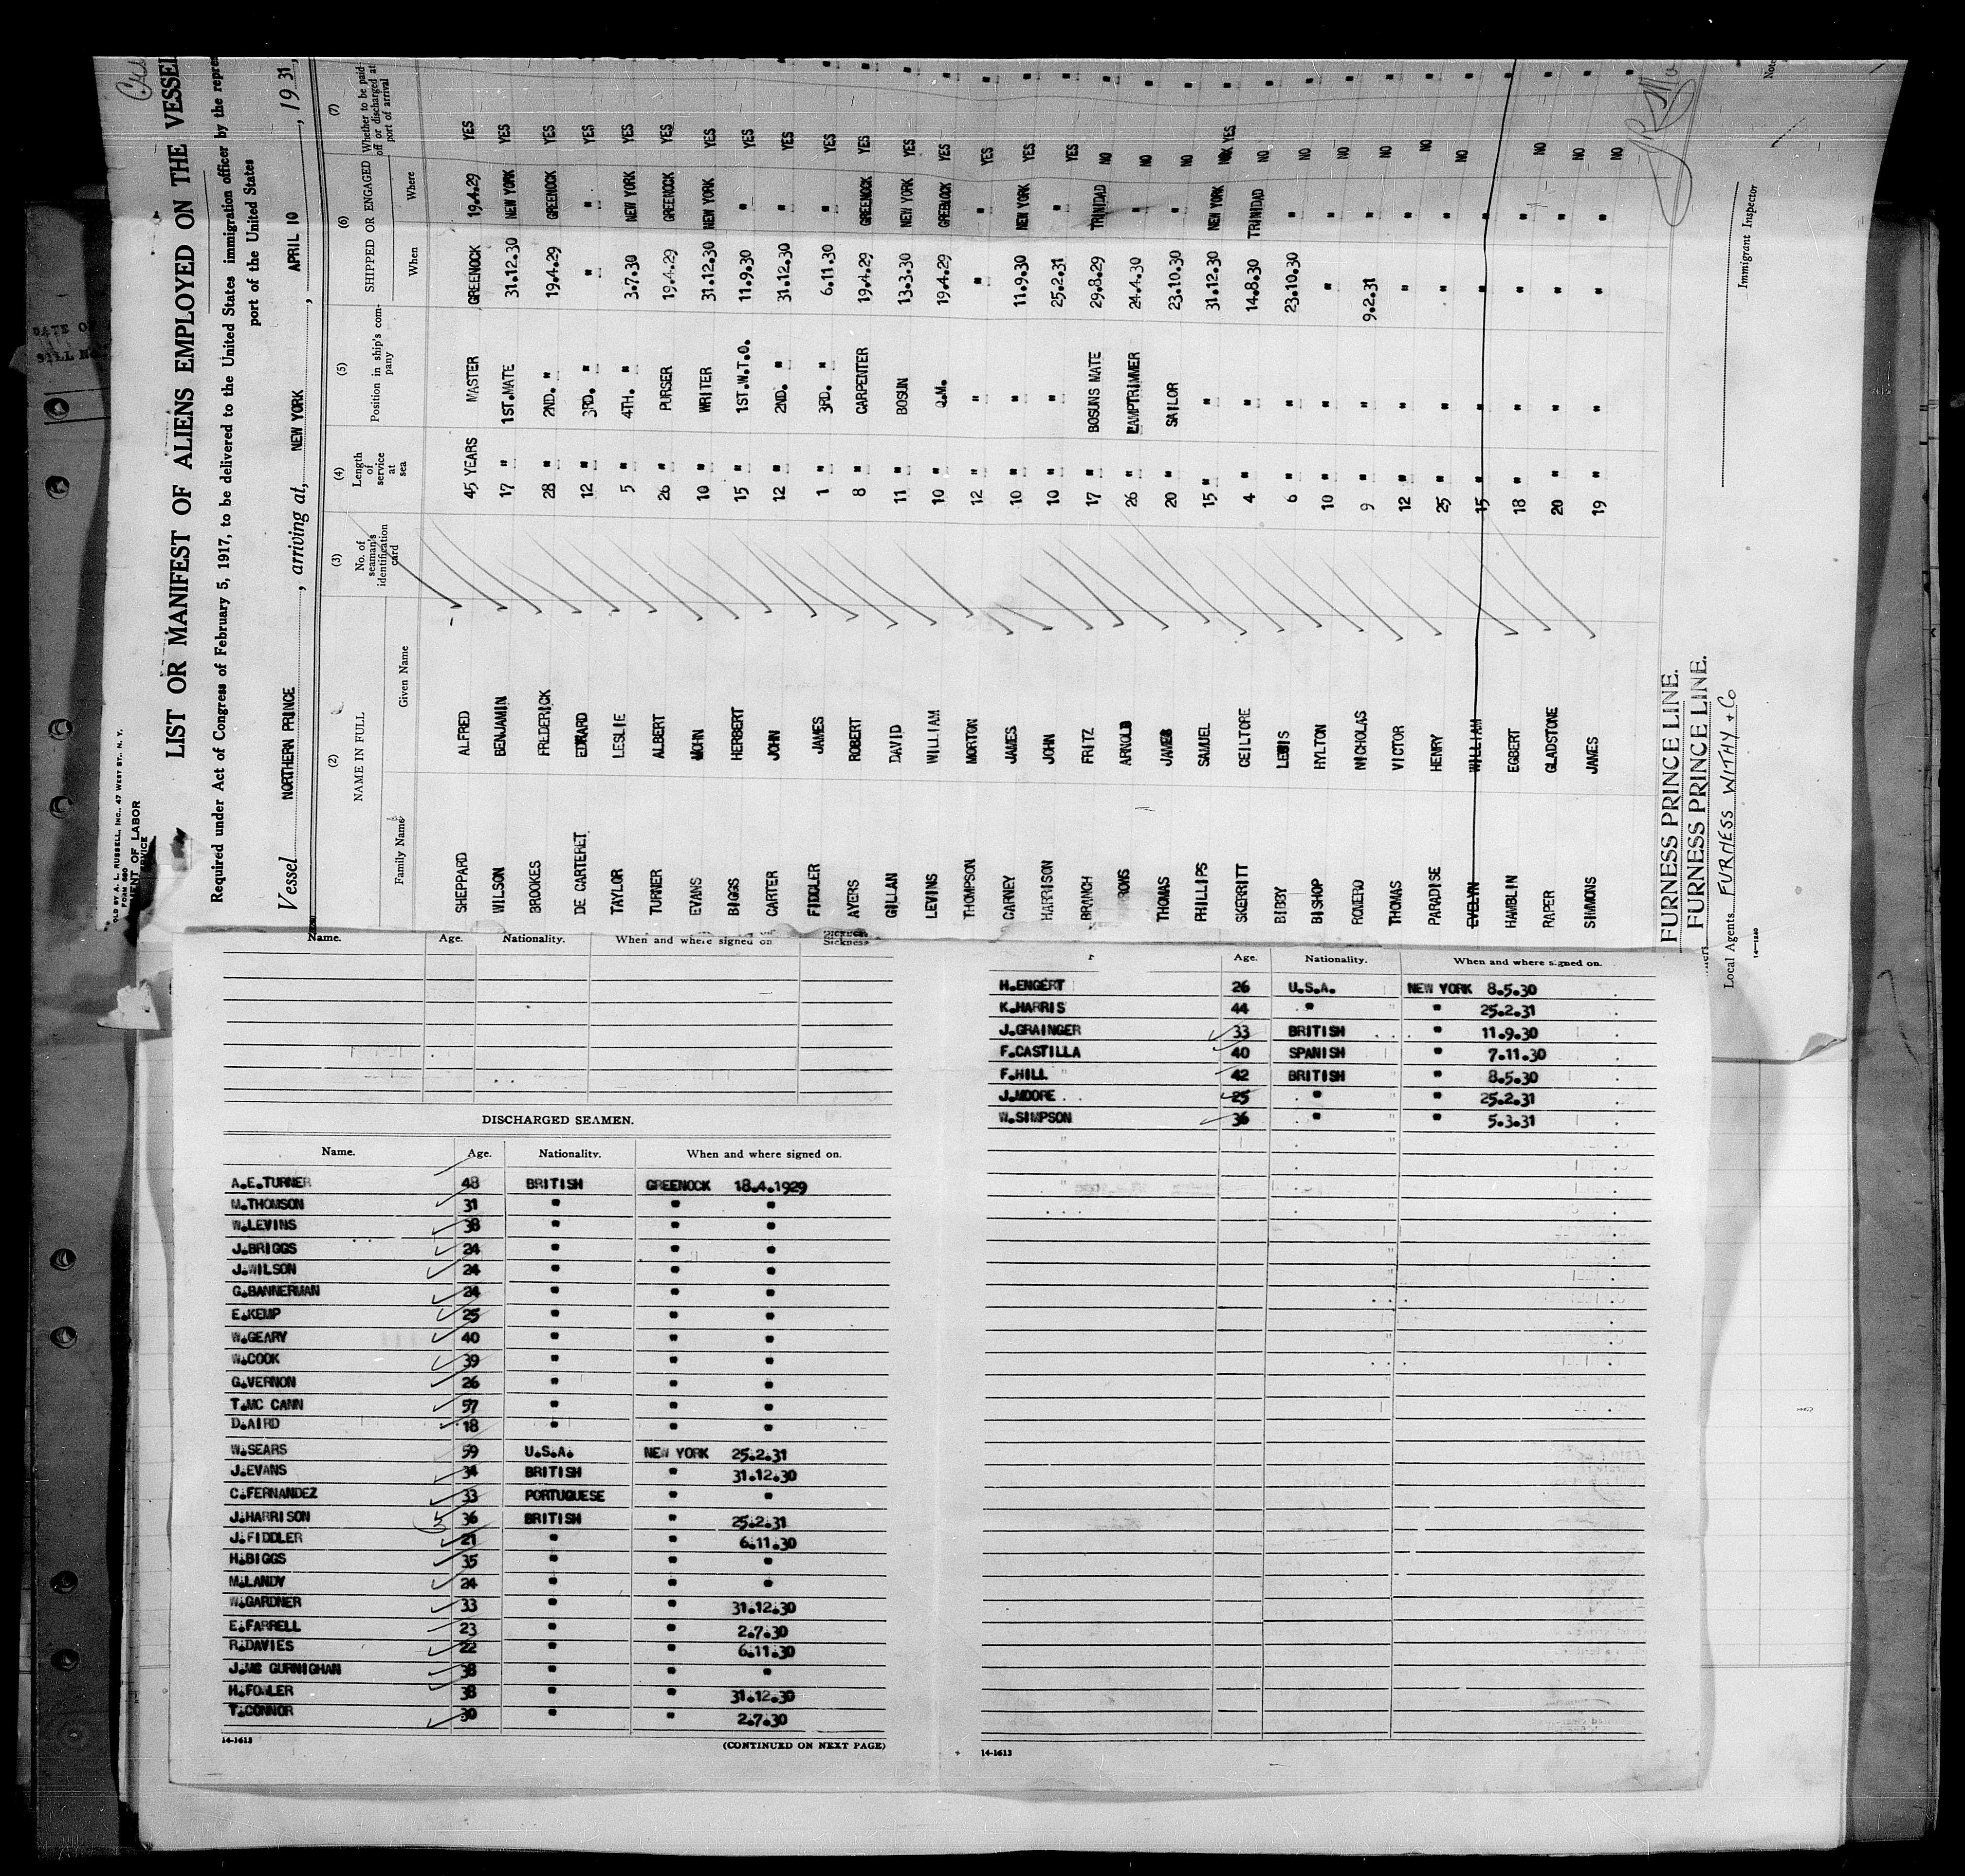 SOLD BY A. L. RUSSELL, INC., 47 WEST ST., N. Y.
FORM 680
MENT OF LABOR
SERVICE
LIST OR MANIFEST OF ALIENS EMPLOYED ON THE VESSEL
Required under Act of Congress of February 5, 1917, to be delivered to the United States immigration officer by the repre
port of the United States
Vessel NORTHERN PRINCE, arriving at, NEW YORK, APRIL 10, 1931,
(2) (3) (4) (5) (6) (7)
NAME IN FULL No. of seaman's identification card Length of service at sea Position in ship's company SHIPPED OR ENGAGED Whether to be paid off or discharged at port of arrival
Family Name Given Name When Where
SHEPPARD ALFRED 45 YEARS MASTER GREENOCK 19.4.29 YES
WILSON BENJAMIN 17 " 1ST.MATE 31.12.30 NEW YORK YES
BROOKES FREDERICK 28 " 2ND. " 19.4.29 GREENOCK YES
DE CARTERET EDWARD 12 " 3RD. " " " YES
TAYLOR LESLIE 5 " 4TH. " 3.7.30 NEW YORK YES
TURNER ALBERT 26 " PURSER 19.4.29 GREENOCK YES
EVANS JOHN 10 " WRITER 31.12.30 NEW YORK YES
BIGGS HERBERT 15 " 1ST.W.T.O. 11.9.30 " YES
CARTER JOHN 12 " 2ND. " 31.12.30 " YES
FIDDLER JAMES 1 " 3RD. " 6.11.30 " YES
AYERS ROBERT 8 " CARPENTER 19.4.29 GREENOCK YES
GILLAN DAVID 11 " BOSUN 13.3.30 NEW YORK YES
LEVINS WILLIAM 10 " Q.M. 19.4.29 GREENOCK YES
THOMPSON MORTON 12 " " " " YES
CARNEY JAMES 10 " " 11.9.30 NEW YORK YES
HARRISON JOHN 10 " " 25.2.31 " YES
BRANCH FRITZ 17 " BOSUNS MATE 29.8.29 TRINIDAD NO
ROWS ARNOLD 26 " LAMPTRIMMER 24.4.30 " NO
THOMAS JAMES 20 " SAILOR 23.10.30 " NO
PHILLIPS SAMUEL 15 " " 31.12.30 NEW YORK YES
SKERRITT CEILTORE 4 " " 14.8.30 TRINIDAD NO
BIBBY LEWIS 6 " " 23.10.30 " NO
BISHOP HYLTON 10 " " " " NO
ROMERO NICHOLAS 9 " " 9.2.31 " NO
THOMAS VICTOR 12 " " " " NO
PARADISE HENRY 25 " " " " NO
EVELYN WILLIAM 15 " " " " NO
HAMBLIN EGBERT 18 " " " "
RAPER GLADSTONE 20 " " " " NO
SIMMONS JAMES 19 " " " " NO
NO
FURNESS PRINCE LINE.
FURNESS PRINCE LINE.
Local Agents FURNESS WITHY & Co
14-1240
Immigrant Inspector
Note
Name. Age. Nationality. When and where signed on Sickness
DISCHARGED SEAMEN.
Name. Age. Nationality. When and where signed on.
A.E.TURNER 48 BRITISH GREENOCK 18.4.1929
M.THOMSON 31 " " "
W.LEVINS 38 " " "
J.BRIGGS 24 " " "
J.WILSON 24 " " "
G.BANNERMAN 24 " " "
E.KEMP 25 " " "
W.GEARY 40 " " "
W.COOK 39 " " "
G.VERNON 26 " " "
T.MC CANN 57 " " "
D.AIRD 18 " " "
W.SEARS 59 U.S.A. NEW YORK 25.2.31
J.EVANS 34 BRITISH " 31.12.30
C.FERNANDEZ 33 PORTUGUESE " "
J.HARRISON 36 BRITISH " 25.2.31
J.FIDDLER 21 " " 6.11.30
H.BIGGS 35 " " "
M.LANDY 24 " " "
W.GARDNER 33 " " 31.12.30
E.FARRELL 23 " " 2.7.30
R.DAVIES 22 " " 6.11.30
J.MC GURNIGHAN 38 " " "
H.FOWLER 38 " " 31.12.30
T.CONNOR 30 " " 2.7.30
14-1613
(CONTINUED ON NEXT PAGE)
Age. Nationality. When and where signed on.
H.ENGERT 26 U.S.A. NEW YORK 8.5.30
K.HARRIS 44 " " 25.2.31
J.GRAINGER 33 BRITISH " 11.9.30
F.CASTILLA 40 SPANISH " 7.11.30
F.HILL 42 BRITISH " 8.5.30
J.MOORE 25 " " 25.2.31
W.SIMPSON 36 " " 5.3.31
14-1613